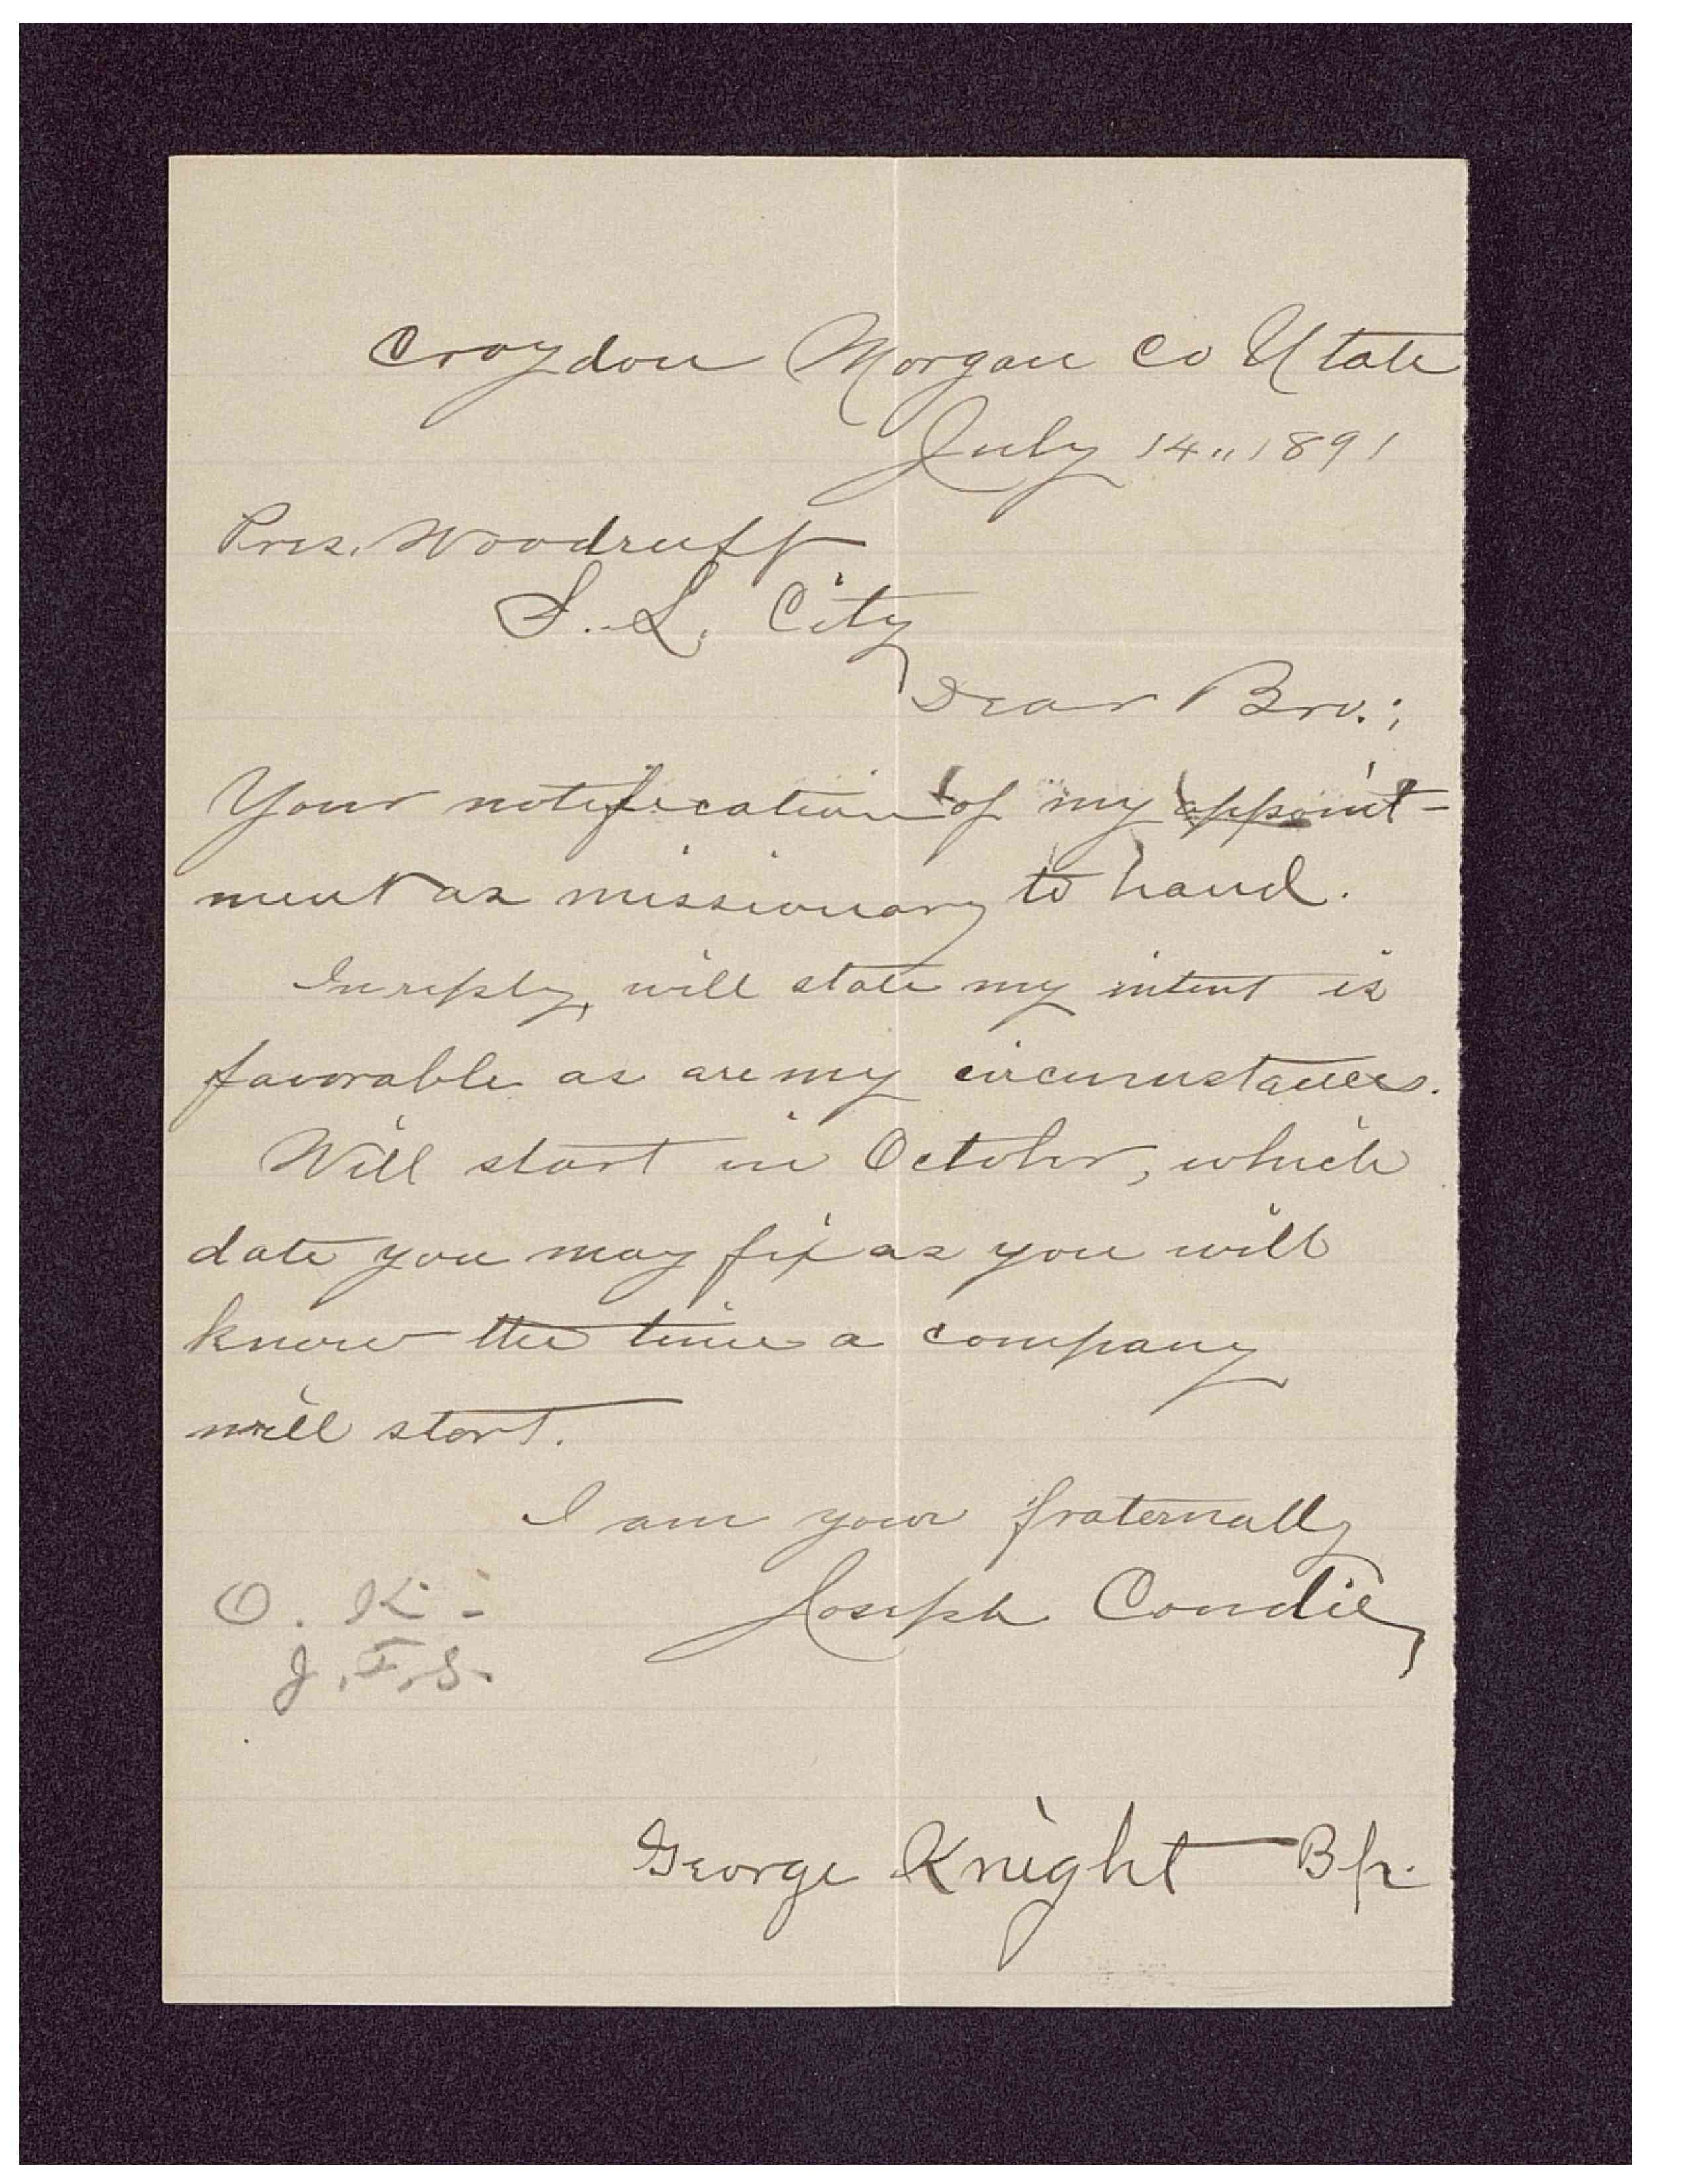 Croydon Morgan Co Utah
July 14,, 1891
Pres. Woodruff
S. L. City
Dear Bro.;
Your notification of my appoint-
ment as missionary to hand.
In reply, will state my intent is
favorable as are my circumstances.
Will start in October, which
date you may fix as you will
know the time a company
will start.
I am your fraternally
Joseph Condie
O. K.-
J. F. S.
George Knight Bp.